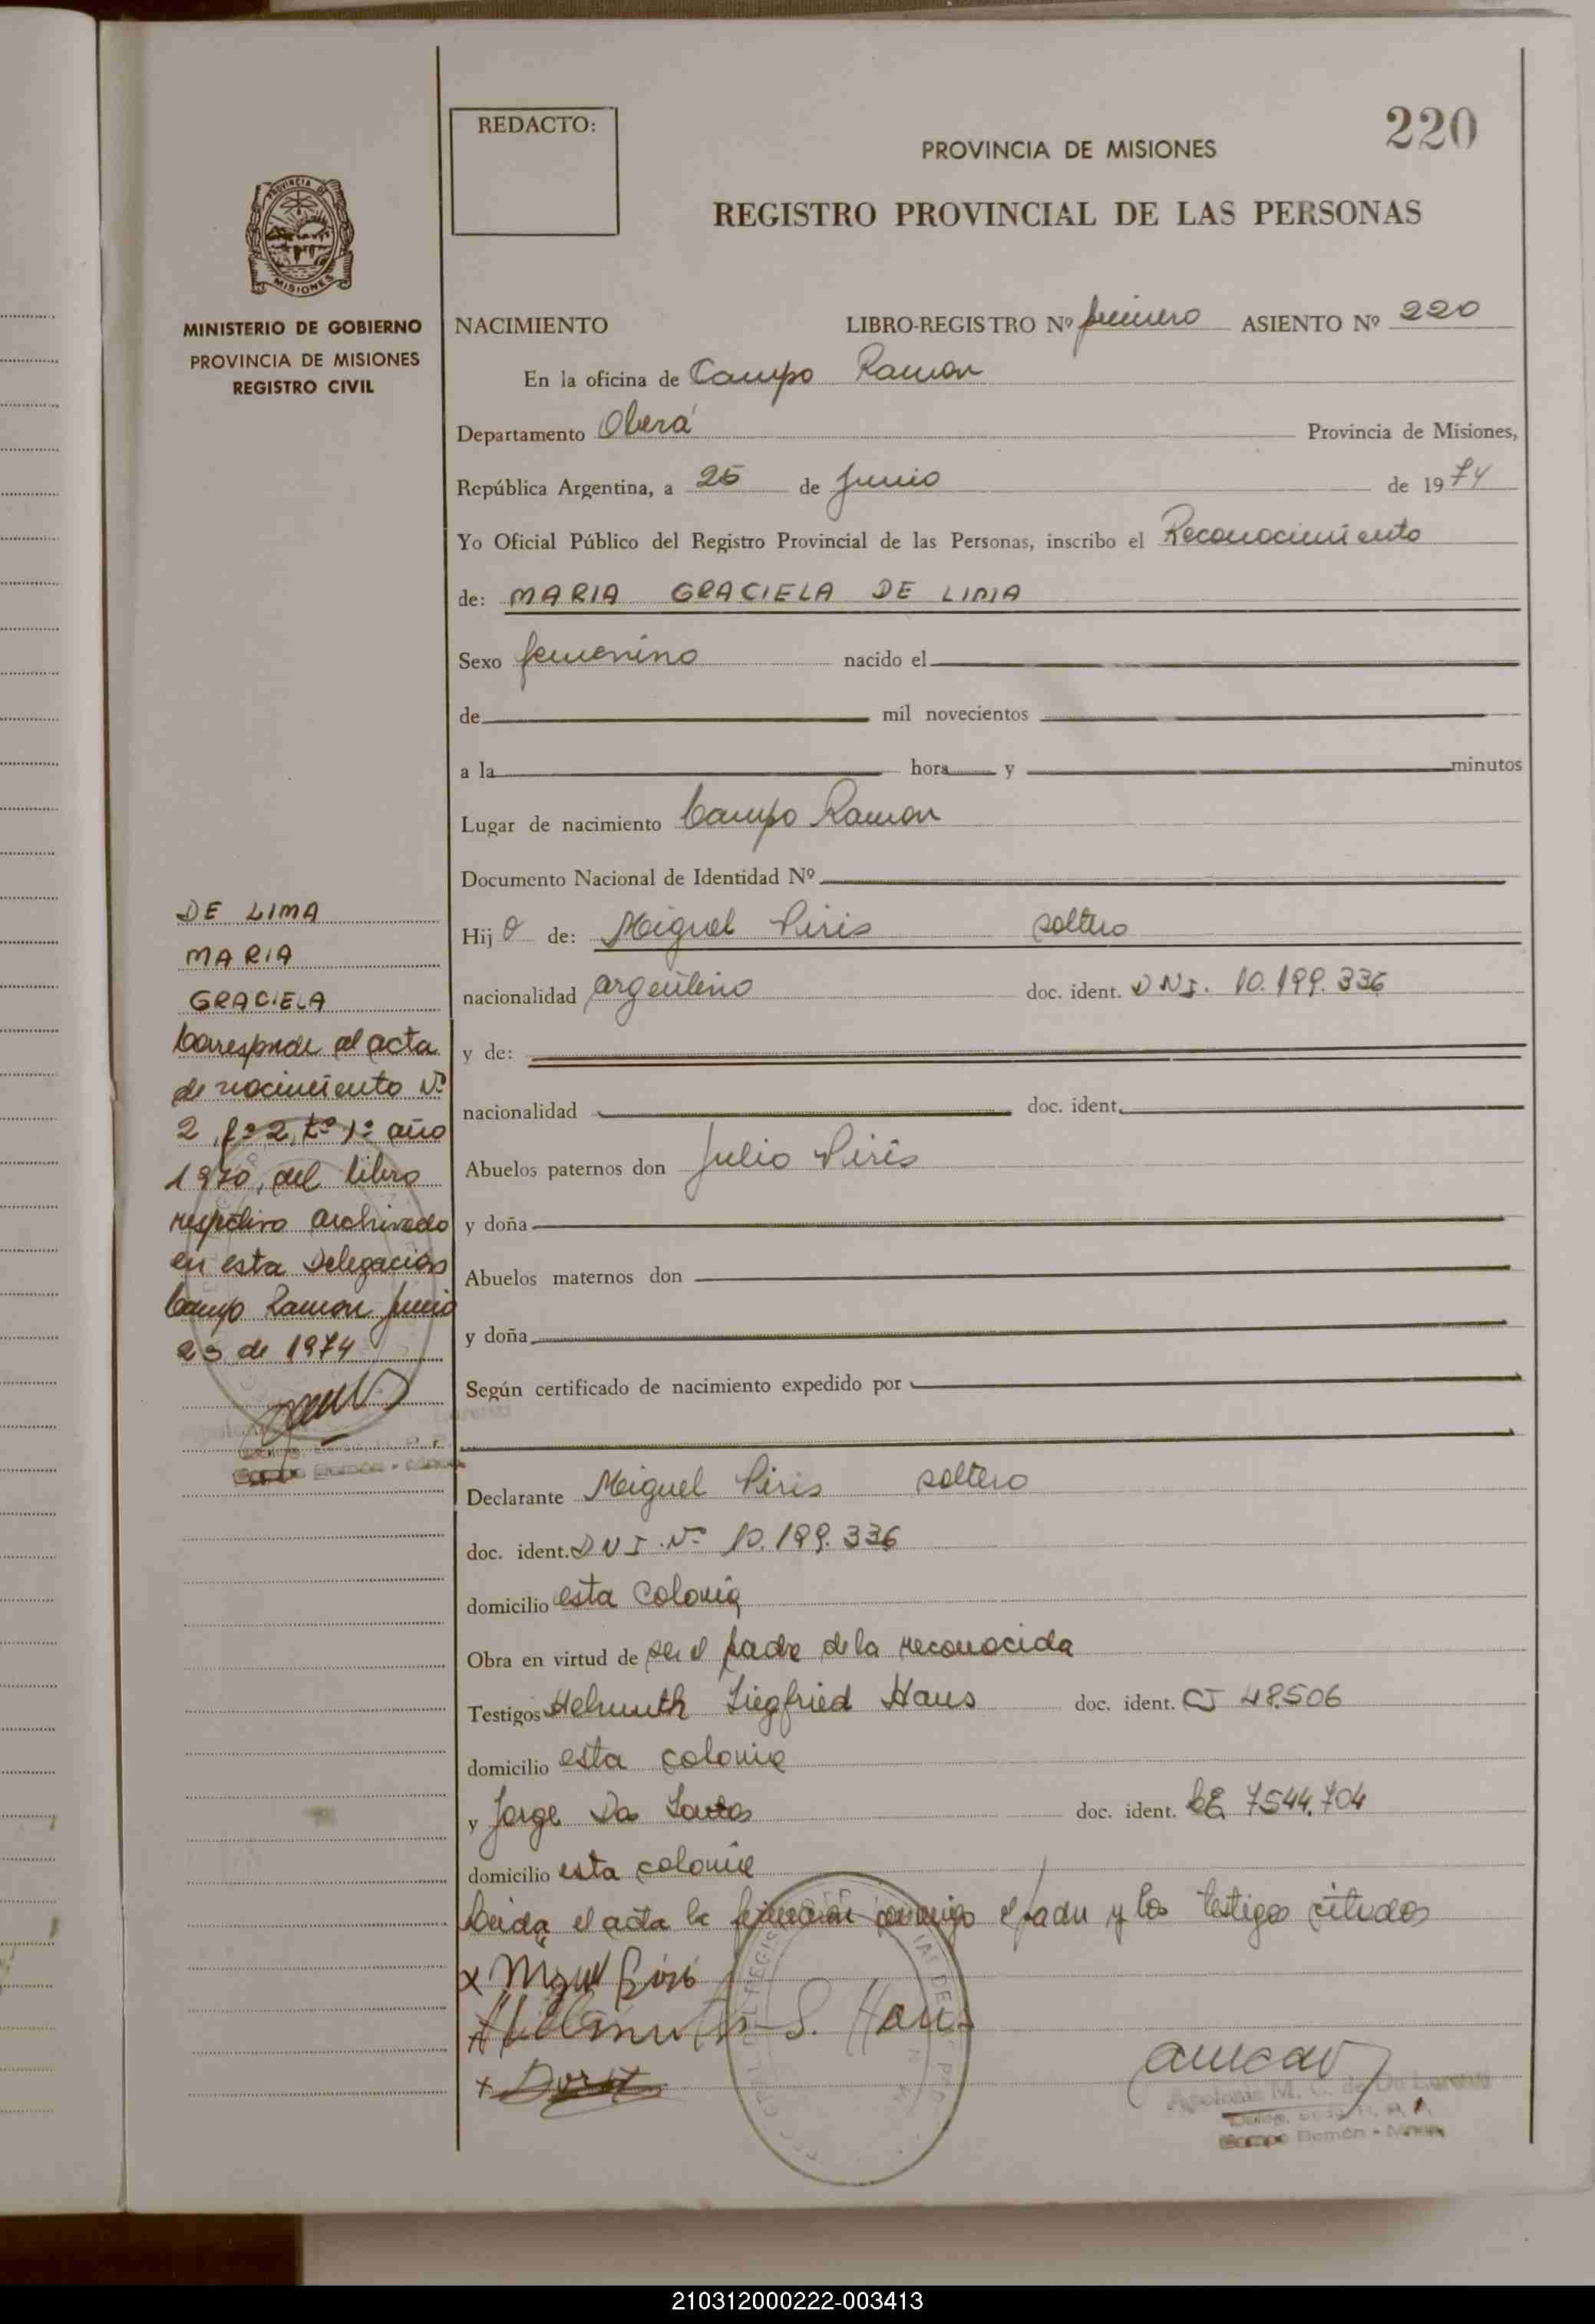 220
REDACTO:
PROVINCIA DE MISIONES
REGISTRO PROVINCIAL DE LAS PERSONAS
PROVINCIA DE
MISIONES
MINISTERIO DE GOBIERNO
PROVINCIA DE MISIONES
REGISTRO CIVIL
NACIMIENTO LIBRO-REGISTRO Nº primero ASIENTO Nº 220
En la oficina de Campo Ramon
Departamento Oberá Provincia de Misiones,
República Argentina, a 25 de Junio de 1974
Yo Oficial Público del Registro Provincial de las Personas, inscribo el Reconocimiento
de: MARIA GRACIELA DE LIMA
Sexo femenino nacido el
de mil novecientos
a la hora y minutos
Lugar de nacimiento Campo Ramon
Documento Nacional de Identidad Nº
Hij de: Miguel Piris soltero
nacionalidad argentino doc. ident. DNI. 10.199.336
y de:
nacionalidad doc. ident.
Abuelos paternos don Julio Piris
y doña
Abuelos maternos don
y doña
Según certificado de nacimiento expedido por
Declarante Miguel Piris soltero
doc. ident. DNI. Nº 10.199.336
domicilio esta Colonia
Obra en virtud de ser el padre de la reconocida
Testigos Helmuth Siegfried Haus doc. ident. CI 48.506
domicilio esta colonia
y Jorge Dos Santos doc. ident. 7.544.704
domicilio esta colonia
Leida el acta la conmigo el padre y los testigos citados
x Miguel Piris
S. Haus
Apolonia M. C. de De Lorenzi
Campo Ramón - Mnes.
DE LIMA
MARIA
GRACIELA
Corresponde al acta
de nacimiento Nº
2, fº 2, tº 1º año
1970, del libro
respectivo archivado
en esta Delegacion
Campo Ramon Junio
25 de 1974
Campo Ramón - Mnes.
210312000222-003413